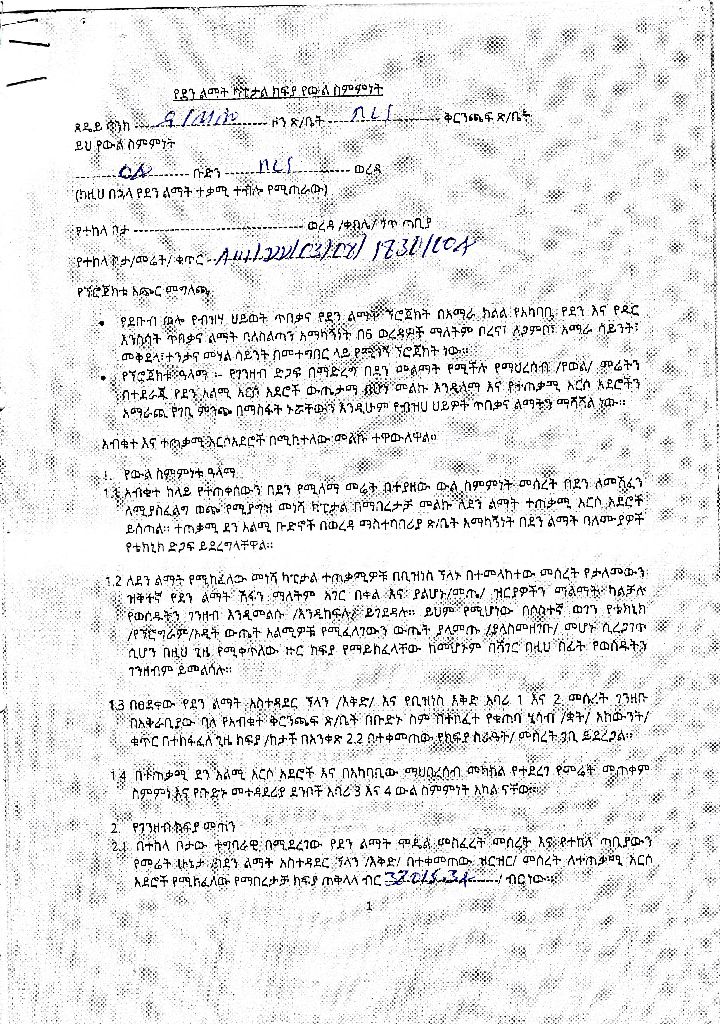 የደን ልማት ካፒታል ክፍያ የውል ስምምነት
ጸደይ ባንክ ዞን ጽ/ቤት ቅርንጫፍ ጽ/ቤት
ይህ የውል ስምምነት
ቡድን ወረዳ
(ከዚህ በኋላ የደን ልማት ተቃሚ ተብሎ የሚጠራው)
የተከላ ቦታ ወረዳ /ቀበሌ/ ጎጥ ጣቢያ
የተከላ ቦታ/መሬት/ ቁጥር
የፕሮጀክቱ አጭር ምግለጫ
• የደቡብ ወሎ የብዝሃ ህይወት ጥበቃና የደን ልማት ፕሮጀክት በአማራ ክልል የአካባቢ የደን እና የዱር
እንስሳት ጥበቃና ልማት ባለስልጣን አማካኝነት በ6 ወረዳዎች ማለትም ቦረና፣ ለጋምቦ፣ አማራ ሳይንት፣
መቅደላ፣ተንታና መሃል ሳይንት በመተግበር ላይ የሚገኝ ፕሮጀክት ነው።
• የፕሮጀክቱ ዓላማ ፡- የገንዘብ ድጋፍ በማድረግ በደን መልማት የሚችሉ የማህረሰብ /የወል/ ምሬትን
በተደራጁ የደን አልሚ አርሶ አደሮች ውጤታማ በሆነ መልኩ እንዲለማ እና የተጠቃሚ አርሶ አደሮችን
አማራጪ የገቢ ምንጭ በማስፋት ኑሯቸውን እንዲሁም የብዝሀ ህይዎት ጥበቃና ልማትን ማሻሻል ነው።
አብቁተ እና ተጠቃሚ አርሶአደሮች በሚከተለው መልኩ ተዋውለዋል።
1. የውል ስምምነቱ ዓላማ
1.1 አብቁተ ከላይ የተጠቀሰውን በደን የሚለማ መሬት በተያዘው ውል ስምምነት መሰረት በደን ለመሸፈን
ለሚያስፈልግ ወጪ የሚያግዝ መነሻ ካፒታል በማበረታቻ መልኩ ለደን ልማት ተጠቃሚ አርሶ አደሮች
ይሰጣል። ተጠቃሚ ደን አልሚ ቡድኖች በወረዳ ማስተባበሪያ ጽ/ቤት አማካኝነት በደን ልማት ባለሙያዎች
የቴክኒክ ድጋፍ ይደረግላቸዋል።
1.2 ለደን ልማት የሚከፈለው መነሻ ካፒታል ተጠቃሚዎቹ በቢዝነስ ፕላኑ በተመላከተው መሰረት የታለመውን
ዝቅተኛ የደን ልማት ሽፋን ማለትም አገር በቀል እና ያልሆኑ/መጤ/ ዝርያዎችን ማልማት ካልቻሉ
የወሰዱትን ገንዘብ እንዲመልሱ /እንዲከፍሉ/ ይገደዳሉ። ይህም የሚሆነው በሶስተኛ ወገን የቴክኒክ
/የፕሮግራም/ኦዲት ውጤት አልሚዎቹ የሚፈለገውን ውጤት ያላመጡ /ያላስመዘገቡ/ መሆኑ ሲረጋገጥ
ሲሆን በዚህ ጊዜ የሚቀጥለው ዙር ክፍያ የማይከፈላቸው ከመሆኑም በሻገር በዚህ ስፊት የወሰዱትን
ገንዘብም ይመልሳሉ።
1.3 በፀደቀው የደን ልማት አስተዳደር ፕላን /እቅድ/ እና የቢዝነስ እቅድ አባሪ 1 እና 2 መሰረት ገንዘቡ
በአቅራቢያው ባለ የአብቁተ ቅርንጫፍ ጽ/ቤት በቡድኑ ስም በተከፈተ የቁጠባ ሂሳብ /ቋት/ አካውንት/
ቁጥር በተከፋፈለ ጊዜ ክፍያ /ከታች በአንቀጽ 2.2 በተቀመጠው የክፍያ ስራዓት/ መሰረት ገቢ ይደረጋል።
1.4 በተጠቃሚ ደን አልሚ አርሶ አደሮች እና በአካባቢው ማህበረሰብ መካከል የተደረገ የመሬት መጠቀም
ስምምነ እና የቡድኑ መተዳደሪያ ደንቦች አባሪ 3 እና 4 ውል ስምምነት አካል ናቸው።
2. የገንዘብ ክፍያ መጠን
2.1 በተከላ ቦታው ትግባራዊ በሚደረገው የደን ልማት ሞዴል መስፈረት መሰረት እና የተከላ ጣቢያውን
የመሬት ሁኔታ በደን ልማት አስተዳደር ፕላን /እቅድ/ በተቀመጠው ዝርዝር/ መሰረት ለተጠቃሚ አርሶ
አደሮች የሚከፈለው የማበረታቻ ክፍያ ጠቅላላ ብር / ብር ነው።
1